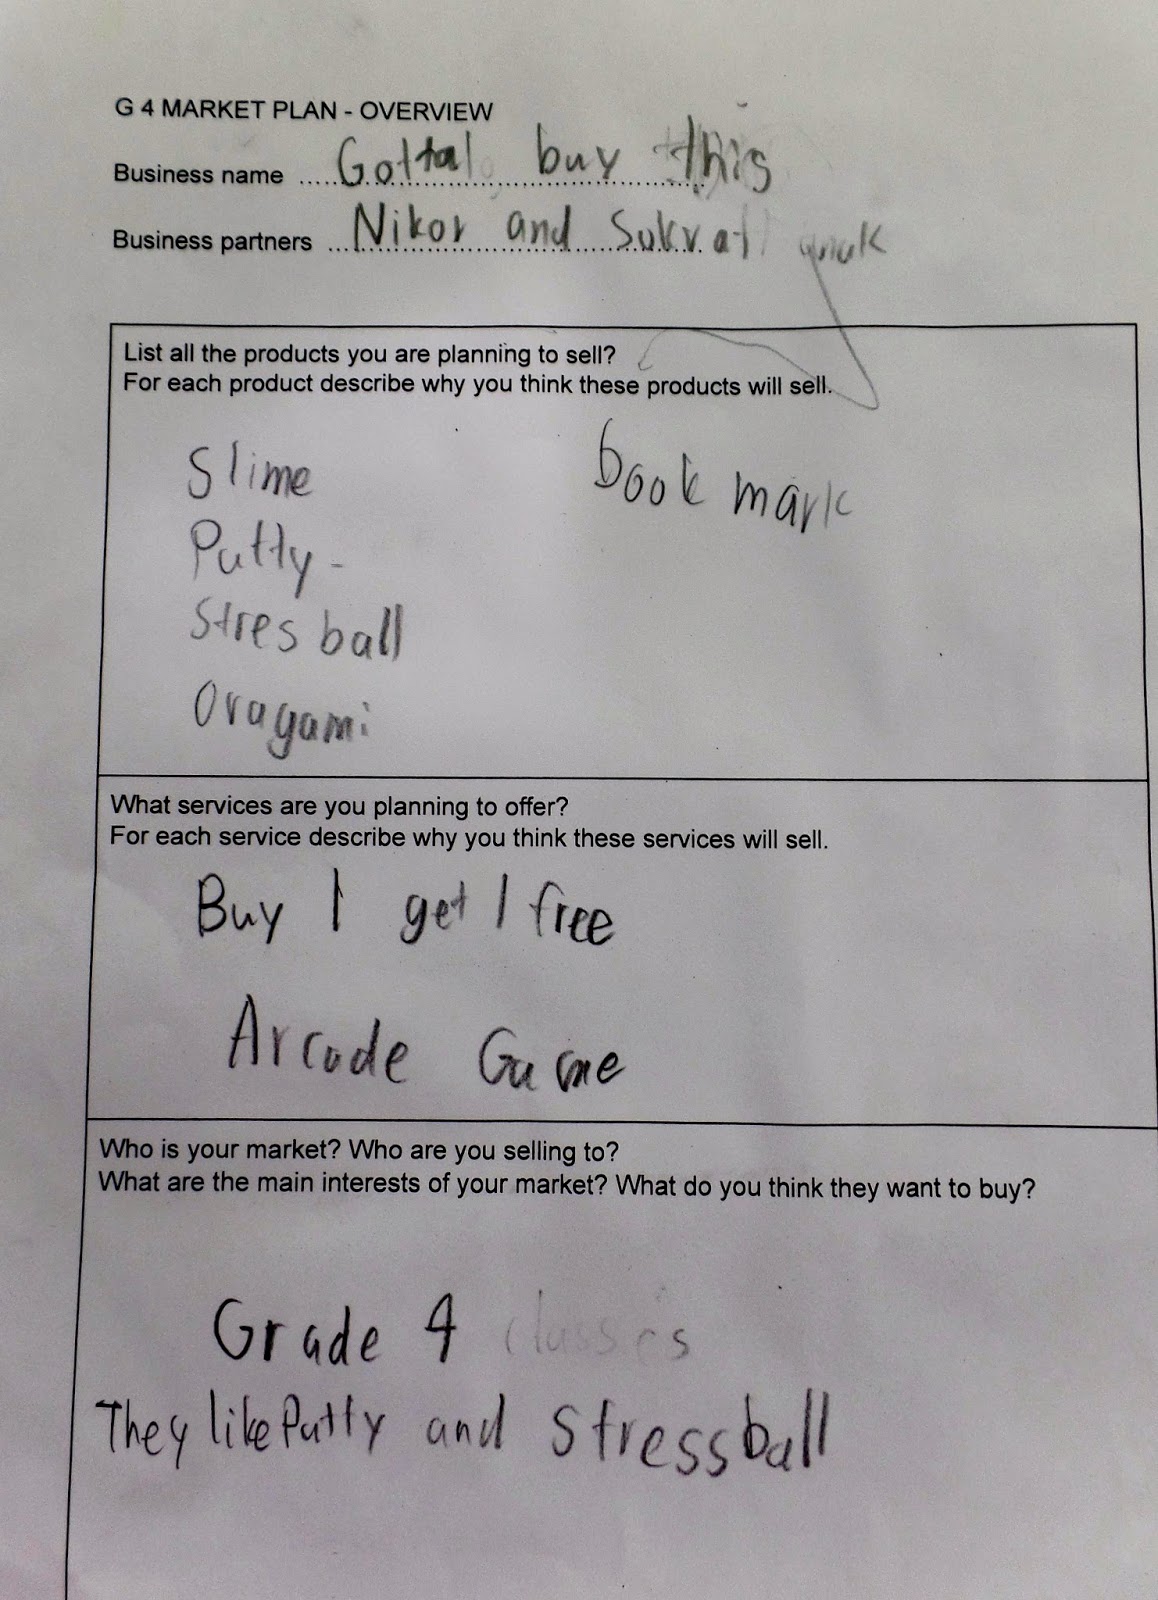 G 4 MARKET PLAN - OVERVIEW
Business name ..... Gotta buy this
Business partners ... Nikor and Sukrat
List all the products you are planning to sell?
For each product describe why you think these products will sell.
Slime
Putty -
Stres ball
Oragami
book mark
What services are you planning to offer?
For each service describe why you think these services will sell.
Buy 1 get 1 free
Arcade Game
Who is your market? Who are you selling to?
What are the main interests of your market? What do you think they want to buy?
Grade 4 classes
They like Putty and Stressball